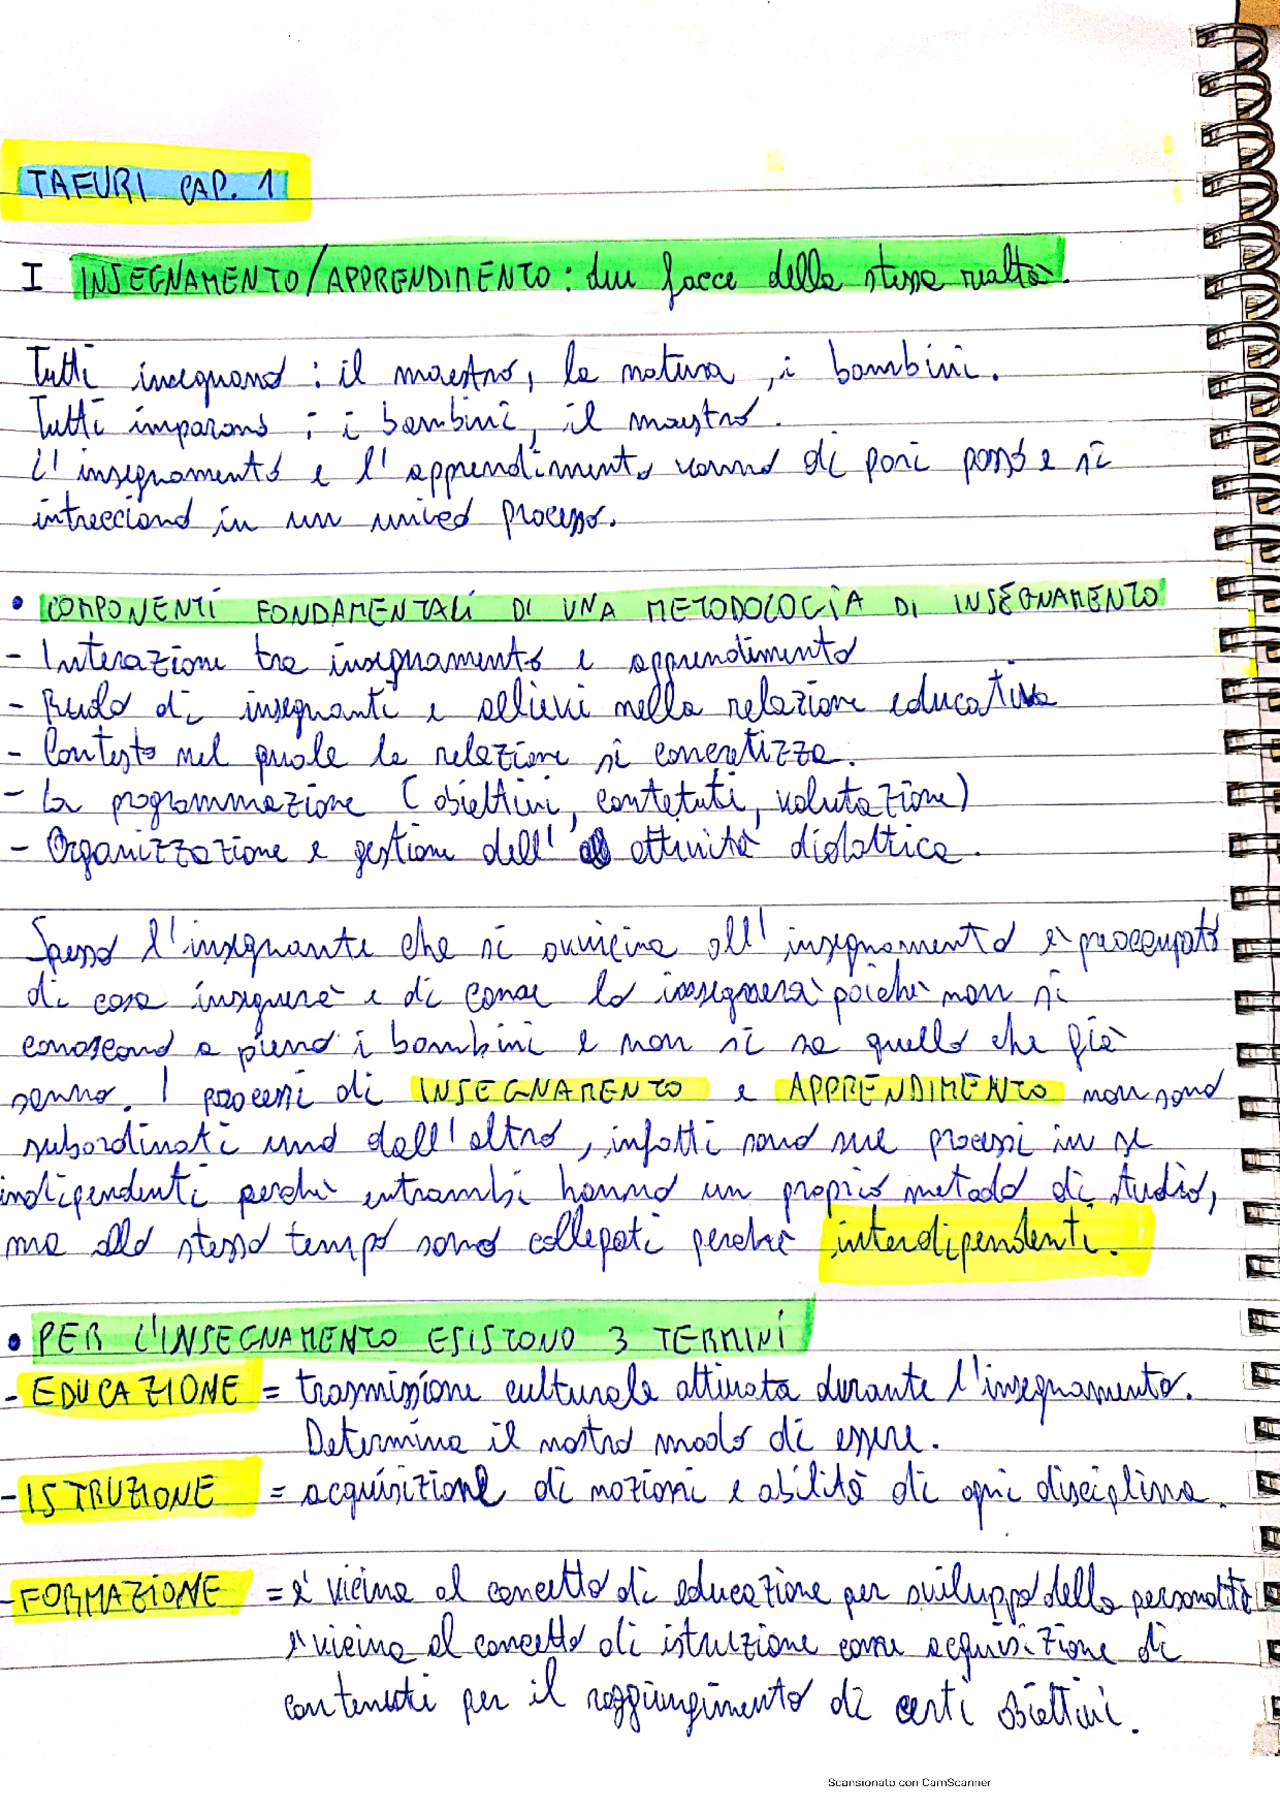 TAFURI CAP. 1
I INSEGNAMENTO/APPRENDIMENTO: due facce della stessa realtà.
Tutti insegnano: il maestro, la natura, i bambini.
Tutti imparano: i bambini, il maestro.
L'insegnamento e l'apprendimento vanno di pari passo e si
intrecciano in un unico processo.
• COMPONENTI FONDAMENTALI DI UNA METODOLOGIA DI INSEGNAMENTO
- Interazione tra insegnamento e apprendimento
- Ruolo di insegnanti e allievi nella relazione educativa
- Contesto nel quale la relazione si concretizza.
- La programmazione (obiettivi, contetuti, valutazione)
- Organizzazione e gestione dell' attività didattica.
Spesso l'insegnante che si avvicina all'insegnamento è preoccupato
di cosa insegnerà e di come lo insegnerà poichè non si
conoscono a pieno i bambini e non si sa quello che già
sanno. I processi di INSEGNAMENTO e APPRENDIMENTO non sono
subordinati uno dall'altro, infatti sono due processi in se
indipendenti perchè entrambi hanno un proprio metodo di studio,
ma allo stesso tempo sono collegati perchè interdipendenti.
• PER L'INSEGNAMENTO ESISTONO 3 TERMINI
- EDUCAZIONE = trasmissione culturale attivata durante l'insegnamento.
Determina il nostro modo di essere.
- ISTRUZIONE = acquisizione di nozioni e abilità di ogni disciplina.
- FORMAZIONE = è vicina al concetto di educazione per sviluppo della personalità
è vicina al concetto di istruzione come acquisizione di
contenuti per il raggiungimento di certi obiettivi.
Scansionato con CamScanner